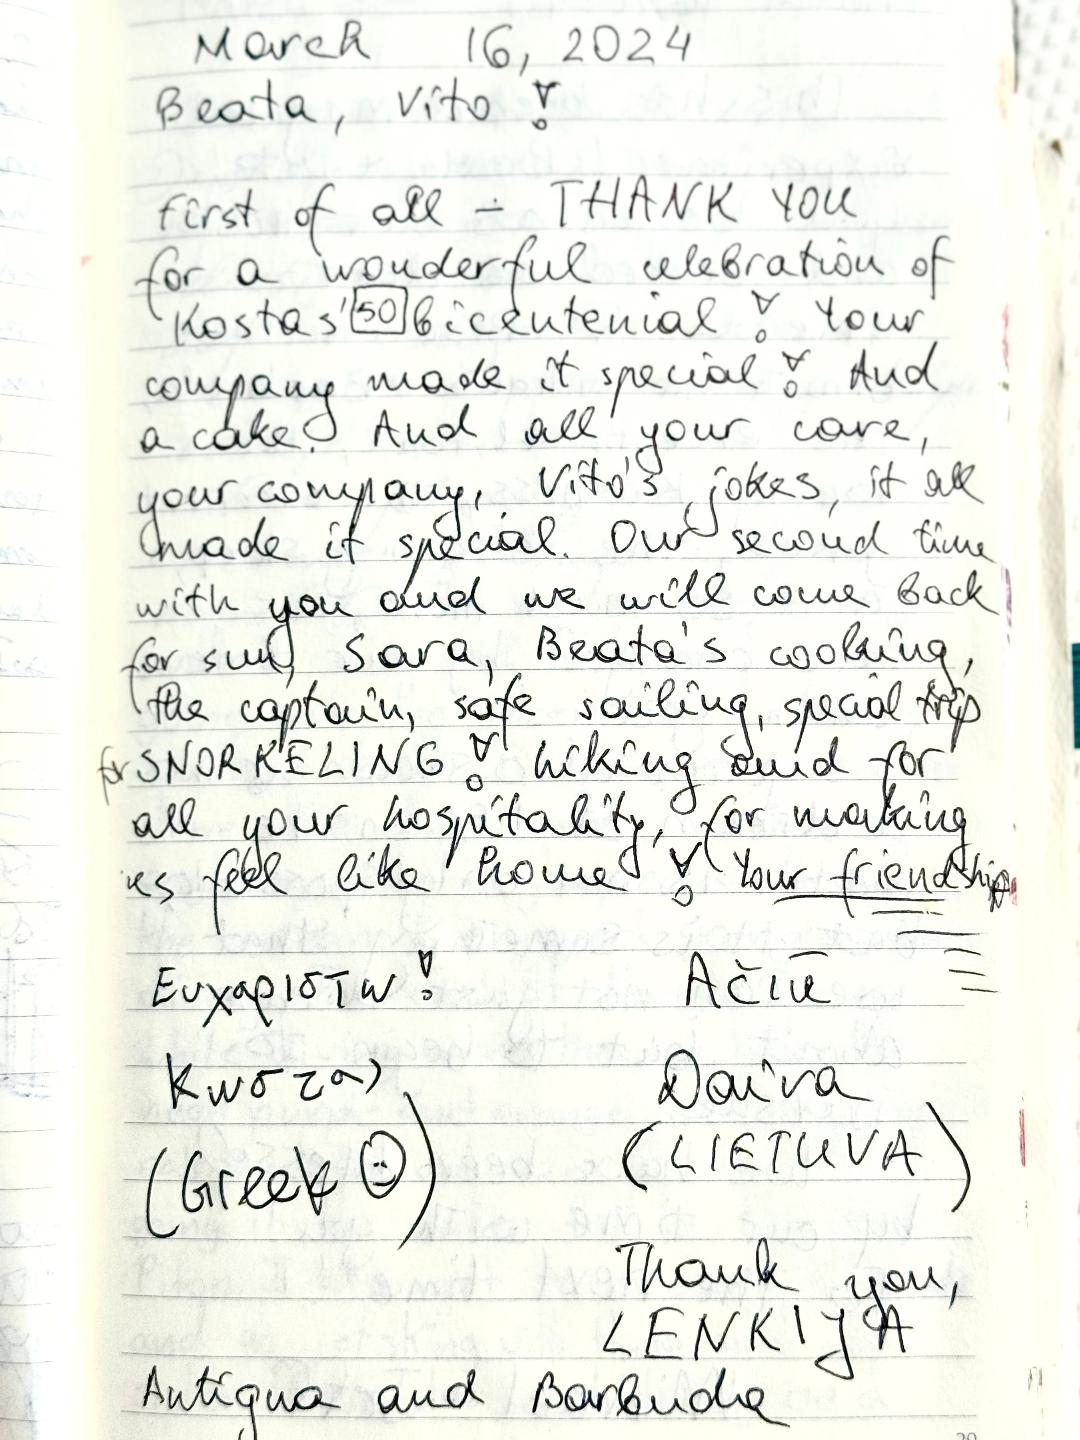 March 16, 2024
Beata, Vito!
first of all - THANK YOU
for a wonderful celebration of
Kostas' 50 bicentenial! Your
company made it special! And
a cake! And all your care,
your company, Vito's jokes, it all
made it special. Our second time
with you and we will come back
for sun, Sara, Beata's cooking,
the captain, safe sailing, special trip
for SNORKELING! hiking and for
all your hospitality, for making
us feel like home! Your friendship
Ευχαριστω! Ačiū
Κωστας Daiva
(Greek ☺) (LIETUVA)
Thank you,
LENKIJA
Antigua and Barbuda